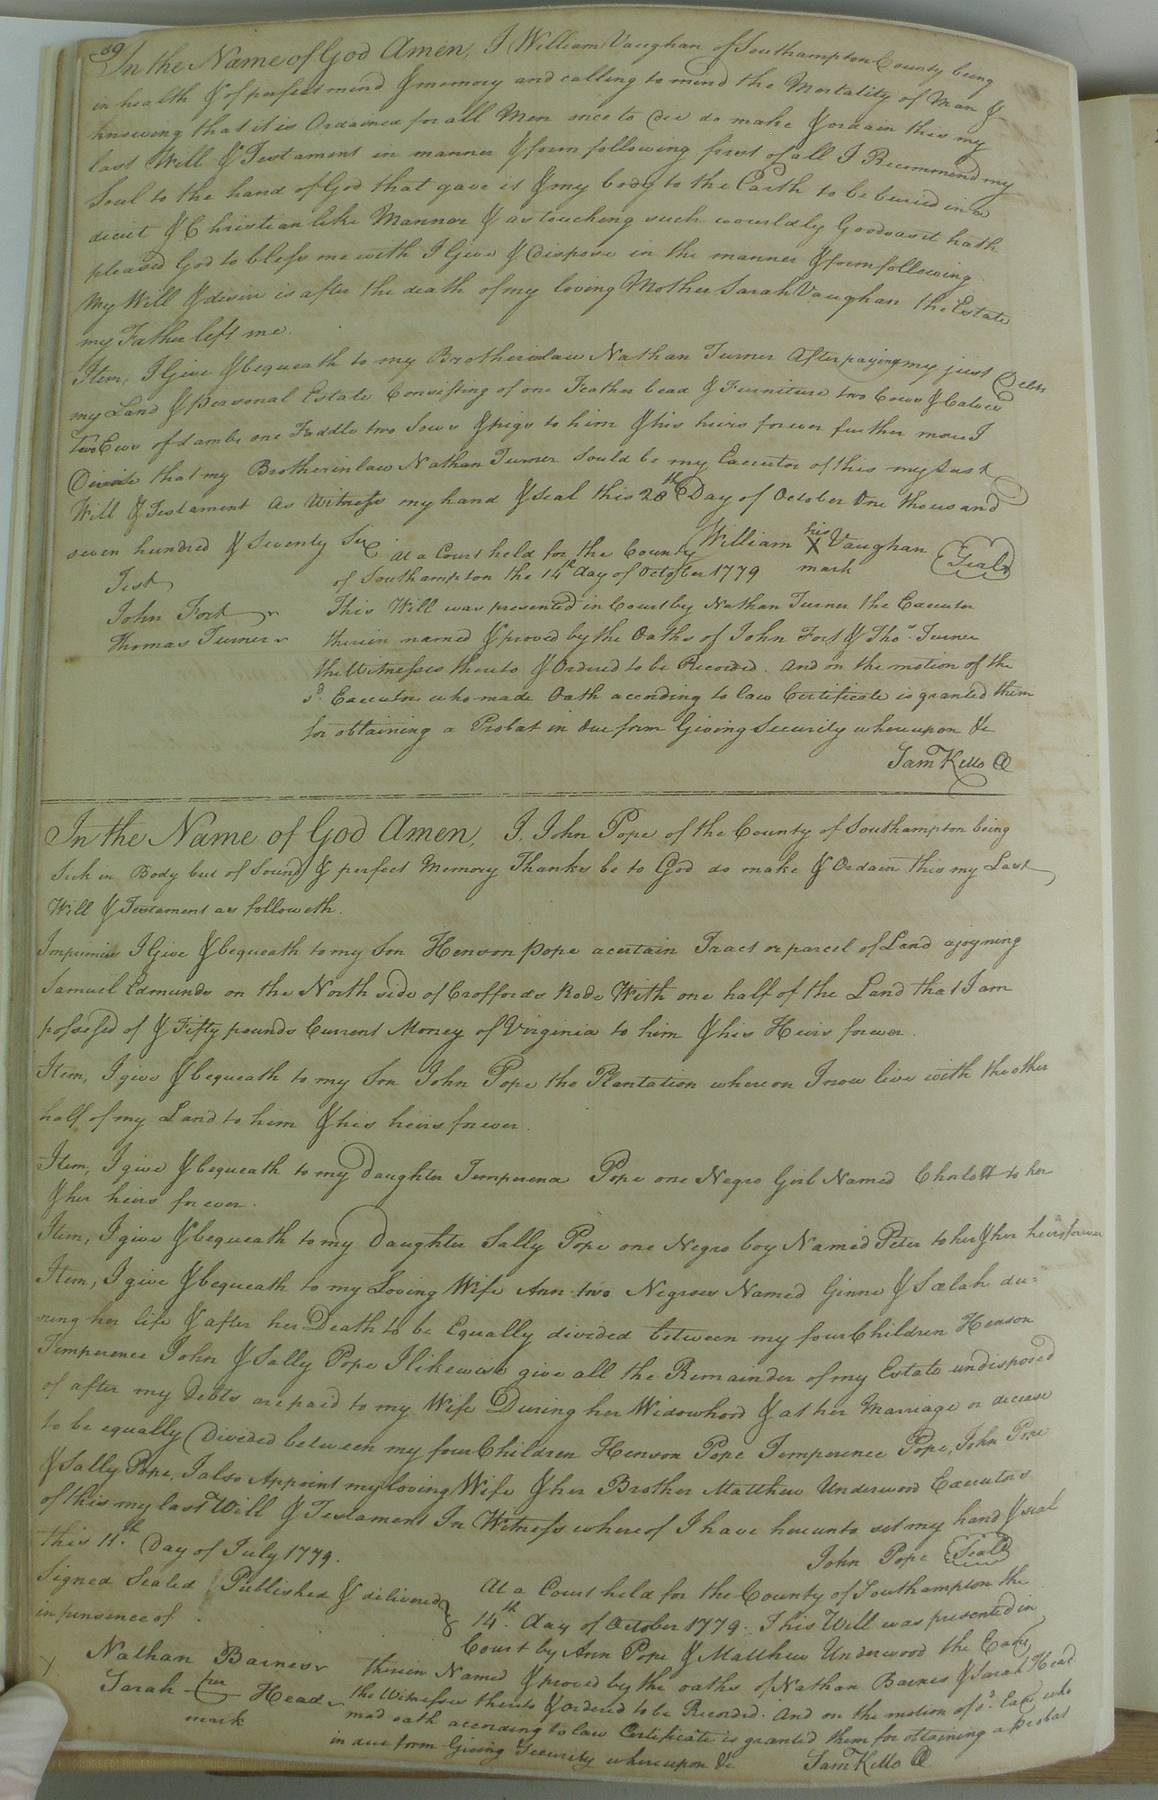 89
In the Name of God Amen, I William Vaughan of Southampton County being
in health & of perfect mind & memory and calling to mind the Mortality of Man &
knowing that it is Ordained for all Men once to Die do make & ordain this my
last Will & Testament in manner & form following first of all I Recommend my
Soul to the hand of God that gave it & my body to the Earth to be buried in a
decent & Christian like Manner & as touching such wourldly Goods as it hath
pleased God to bless me with I Give & dispose in the manner & form following
My Will & desire is after the death of my loving Mother Sarah Vaughan the Estate
my Father left me.
Item, I Give & bequeath to my Brotherinlaw Nathan Turner After paying my just Debts
my Land & personal Estate Consisting of one Feather bead & Furniture two Cows & Calves
two Ews & Lambs one Saddle two Sows & pigs to him & his heirs forever further more I
Desire that my Brotherinlaw Nathan Turner Sould be my Executor of this my Last
Will & Testament As Witness my hand & Seal this 28th Day of October One thousand
seven hundred & Seventy Six
William his X mark Vaughan Seal
Test
John Fort
Thomas Turner
At a Court held for the County
of Southampton the 14th day of October 1779
This Will was presented in Court by Nathan Turner the Executor
therein named & proved by the Oaths of John Fort & Thos. Turner
the Witnesses thereto & Ordered to be Recorded. And on the motion of the
sd. Executor who made Oath according to law Certificate is granted them
for obtaining a Probat in due form Giving Security whereupon &c
Sam Kello C
In the Name of God Amen, I, John Pope of the County of Southampton being
Sick in Body but of Sound & perfect Memory Thanks be to God do make & Ordain this my Last
Will & Testament as followeth.
Imprimis I Give & bequeath to my Son Henson Pope a certain Tract or parcel of Land ajoyning
Samuel Edmunds on the North side of Croffords Rode With one half of the Land that I am
possessed of & Fifty pounds Current Money of Virginia to him & his Heirs forever.
Item, I give & bequeath to my Son John Pope the Plantation whereon I now live with the other
half of my Land to him & his heirs forever.
Item, I give & bequeath to my daughter Temperena Pope one Negro Girl Named Charlott to her
& her heirs forever.
Item, I give & bequeath to my Daughter Sally Pope one Negro boy Named Peter to her & her heirs forever
Item, I give & bequeath to my Loving Wife Ann two Negroes Named Ginne & Sælah du-
ring her life & after her Death to be Equally divided between my four Children Henson
Temperence John & Sally Pope I likewise give all the Remainder of my Estate undisposed
of after my Debts are paid to my Wife During her Widowhood & at her Marriage or decease
to be equally Divided between my four Children Henson Pope Temperence Pope, John Pope
& Sally Pope, I also Appoint my loving Wife & her Brother Matthew Underwood Executors
of this my last Will & Testament In Witness whereof I have hereunto set my hand & seal
this 11th. Day of July 1779.
John Pope Seal
Signed Sealed Published & delivered
in presence of
Nathan Barnes
Sarah her mark Head
At a Court held for the County of Southampton the
14th. day of October 1779. This Will was presented in
Court by Ann Pope & Matthew Underwood the Exors
therein Named & proved by the oaths of Nathan Barnes & Sarah Head
the Witnesses thereto & ordered to be Recorded. And on the motion of sd. Exors who
mad oath according to law Certificate is granted them for obtaining a probat
in due form Giving Security whereupon &c
Sam Kello C